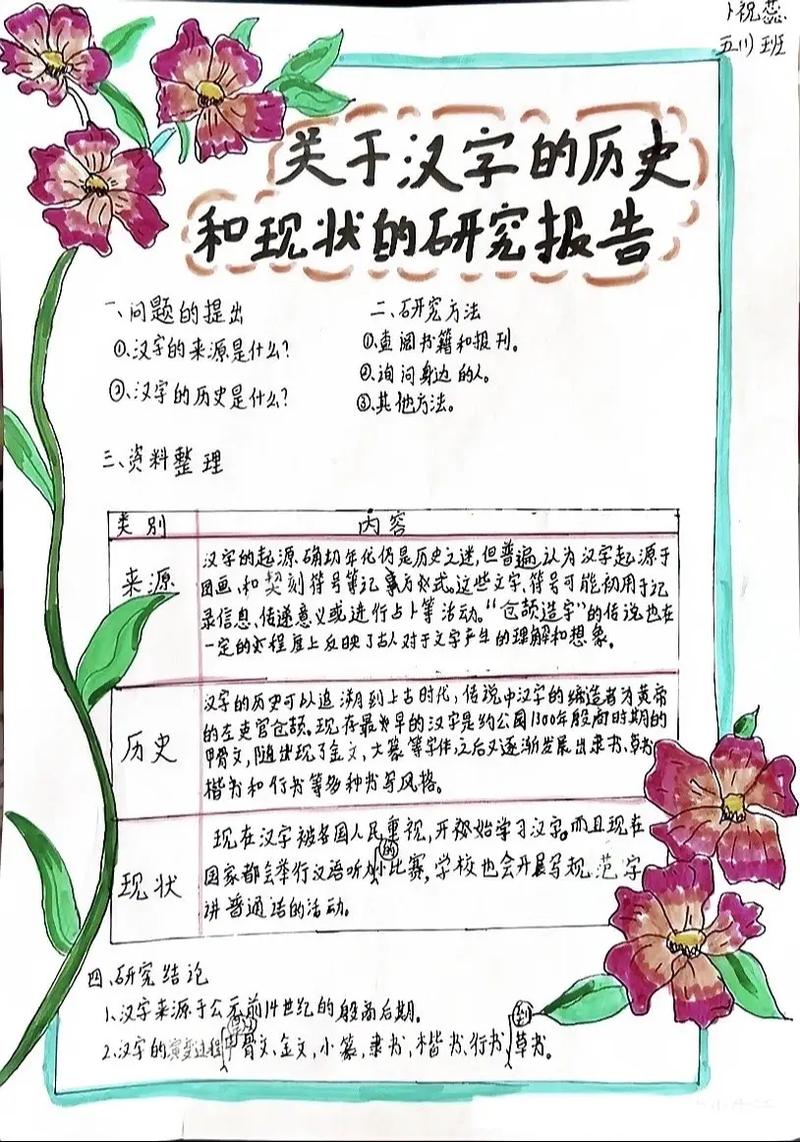 卜祝蕊
五(1)班
关于汉字的历史
和现状的研究报告
一、问题的提出
①.汉字的来源是什么?
②.汉字的历史是什么?
二、研究方法
①.查阅书籍和报刊。
②.询问身边的人。
③.其他方法。
三、资料整理
类别 内容
来源
汉字的起源、确切年代仍是历史之迷,但普遍认为汉字起源于
图画、和契刻符号等记事方式。这些文字、符号可能初用于记
录信息、传递意义或进行占卜等活动。“仓颉造字”的传说也在
一定的程度上反映了古人对于文字产生的理解和想象。
历史
汉字的历史可以追溯到上古时代,传说中汉字的缔造者为黄帝
的左吏官仓颉。现存最早的汉字是约公园1300年殷商时期的
甲骨文,随出现了金文,大篆等字体,之后又逐渐发展出隶书、草书
楷书和行书等多种书写风格。
现状
现在汉字被各国人民重视,开始学习汉字。而且现在
国家都会举行汉语听小比赛,学校也会开展写规范字
讲普通话的活动。
四、研究结论
1.汉字来源于公元前14世纪的殷商后期。
2.汉字的演变过程甲骨文、金文,小篆,隶书,楷书、行书到草书。